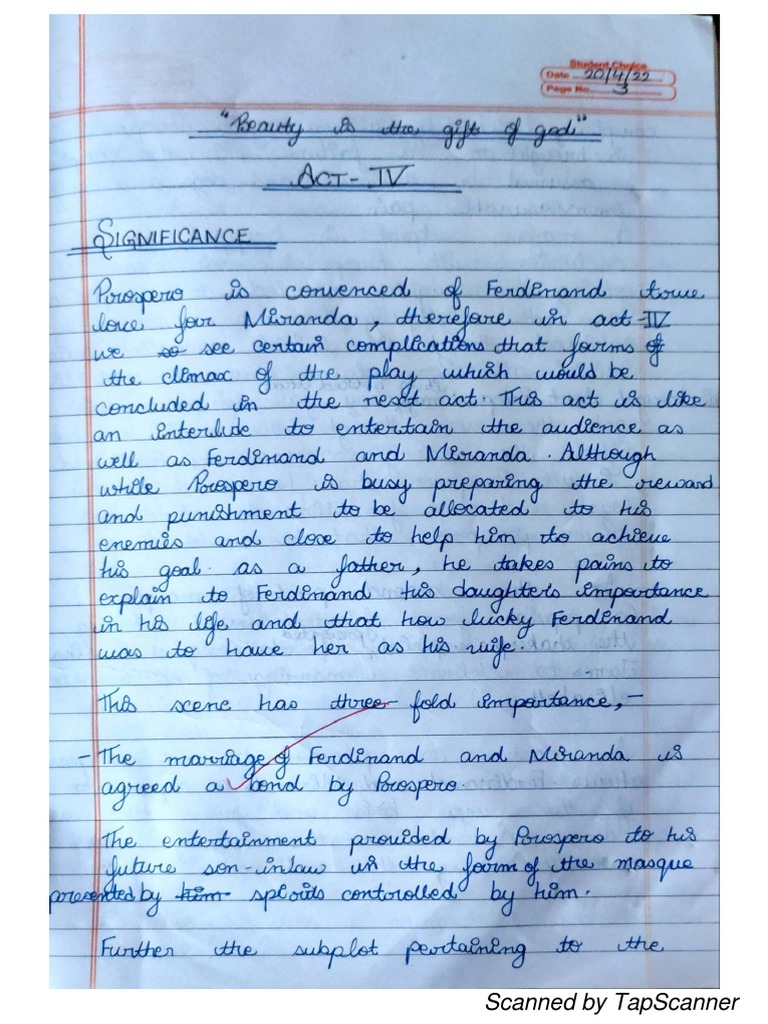 Student Choice
Date 20/4/22
Page No. 3
"Beauty is the gift of god"
ACT-IV
SIGNIFICANCE
Prospero is convenced of Ferdinand true
love for Miranda, therefore in act IV
we so see certain complications that forms of
the climax of the play which would be
concluded in the next act. This act is like
an interlude to entertain the audience as
well as Ferdinand and Miranda. Although
while Prospero is busy preparing the reward
and punishment to be allocated to his
enemies and close to help him to achieve
his goal. as a father, he takes pains to
explain to Ferdinand his daughters importance
in his life and that how lucky Ferdinand
was to have her as his wife.
This scene has three fold importance,-
- The marriage of Ferdinand and Miranda is
agreed a bond by Prospero.
The entertainment provided by Prospero to his
future son-inlaw in the form of the masque
presented by him spirits controlled by him.
Further the subplot pertaining to the
Scanned by TapScanner